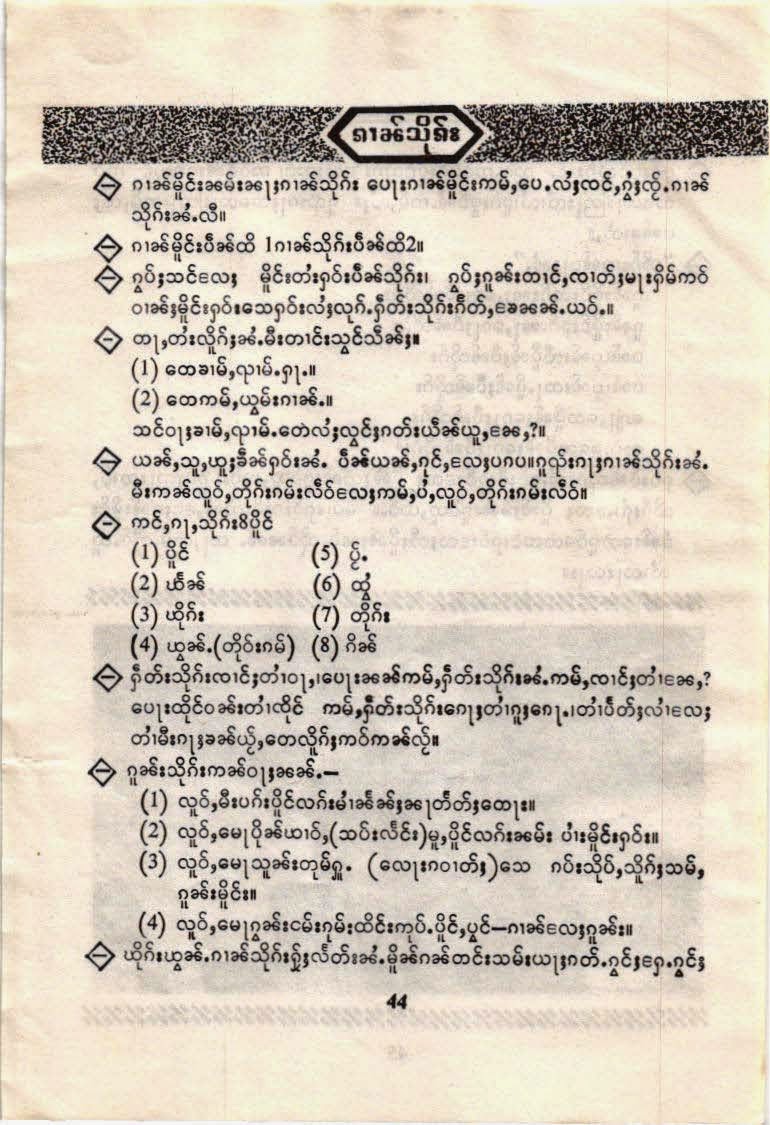 ၵၢၼ်သိုၵ်း
ၵၢၼ်မိူင်းၼမ်းၼႃႈၵၢၼ်သိုၵ်း ပေႃးၵၢၼ်မိူင်းဢမ်ႇပေႉလႆႈၸင်ႇၵွႆႈၸႂ်ႉၵၢၼ်
သိုၵ်းၼႆႉလီ။
ၵၢၼ်မိူင်းပဵၼ်ထိ 1ၵၢၼ်သိုၵ်းပဵၼ်ထိ2။
ၵွပ်ႈသင်လႄႈ မိူင်းတႆးႁဝ်းပဵၼ်သိုၵ်း၊ ၵွပ်ႈၵူၼ်းတၢင်ႇၸၢတ်ႈမႃးႁိမ်ဢဝ်
ဝၢၼ်ႈမိူင်းႁဝ်းသေႁဝ်းလႆႈလုၵ်ႉႁဵတ်းသိုၵ်းၵိတ်ႇၶႄၼၼ်ႉယဝ်ႉ။
တႃႇတႆးလိူၵ်ႈၼႆႉမီးတၢင်းသွင်သဵၼ်ႈ။
(1) တေၶၢမ်ႇၺၢမ်ႉႁႃႉ။
(2) တေဢမ်ႇယွမ်းၵၢၼ်ႉ။
သင်ဝႃႈၶၢမ်ႇၺၢမ်ႉတေလႆႈလွင်ႈၵတ်းယဵၼ်ယူႇၼႄႇ?။
ယၼ်ႇသူႇယူႈၶဵၼ်ႁဝ်းၼႆႉ ပဵၼ်ယၼ်ႇၵုင်ႇလႄႈပၵပ။ၵူၺ်းၵႃႈၵၢၼ်သိုၵ်းၼႆႉ
မီးဢၼ်လူဝ်ႇတိုၵ်းၵမ်းလဵဝ်လႄႈဢမ်ႇပႆႇလူဝ်ႇတိုၵ်းၵမ်းလဵဝ်။
ဢင်ႇၵႃႇသိုၵ်း8ပိူင်
(1) ပိူင်
(2) ယႅၼ်
(3) ယိုၵ်း
(4) ယွၼ်ႉ(တိုဝ်းၵမ်)
(5) ပႂ်ႉ
(6) ထွႆ
(7) တိုၵ်း
(8) ၵိၼ်
ႁဵတ်းသိုၵ်းၸၢင်ႈတၢႆဝႃႇ၊ပေႃးၼၼ်ဢမ်ႇႁဵတ်းသိုၵ်းၼႆႉဢမ်ႇၸၢင်ႈတၢႆၼႄႇ?
ပေႃးထိုင်ဝၼ်းတၢႆၸိုင် ဢမ်ႇႁဵတ်းသိုၵ်းၵေႃႈတၢႆၵူႈၵေႃႉ၊တၢႆပႅတ်ႈလၢႆလႄႈ
တၢႆမီးၵႃႈၶၼ်ယႂ်ႇတေလိူၵ်ႈဢဝ်ဢၼ်လႂ်။
ၵူၼ်းသိုၵ်းဢၼ်ဝႃႈၼၼ်ႉ—
(1) လူဝ်ႇမီးပၵ်းပိူင်လၵ်းမၢႆၼႅၼ်ႈၼႃတႅတ်ႈထေႃး။
(2) လူဝ်ႇမေႃပိုၼ်ၽၢဝ်ႇ(သပ်းလႅင်း)မူႇပိူင်လၵ်းၼမ်း ပၢႆးမိူင်းႁဝ်း။
(3) လူဝ်ႇမေႃသူၼ်းတုမ်ႁူႉ (လေႃးၵဝၢတ်ႈ)သေ ၵပ်းသိုပ်ႇသိူၵ်ႈသမ်ႇ
ၵူၼ်းမိူင်း။
(4) လူဝ်ႇမေႃၵွၼ်းငမ်းၵုမ်းထိင်းဢုပ်ႉပိူင်ႇပွင်—ၵၢၼ်လႄႈၵူၼ်း။
ယိုၵ်းယွၼ်ႉၵၢၼ်သိုၵ်းႁႂ်ႈလႅတ်းၼႆႉမိူၼ်ၵၼ်တင်းသမ်းယႃႈၵတ်ႉၵွင်ႈႁႄႉၵွင်ႈ
44